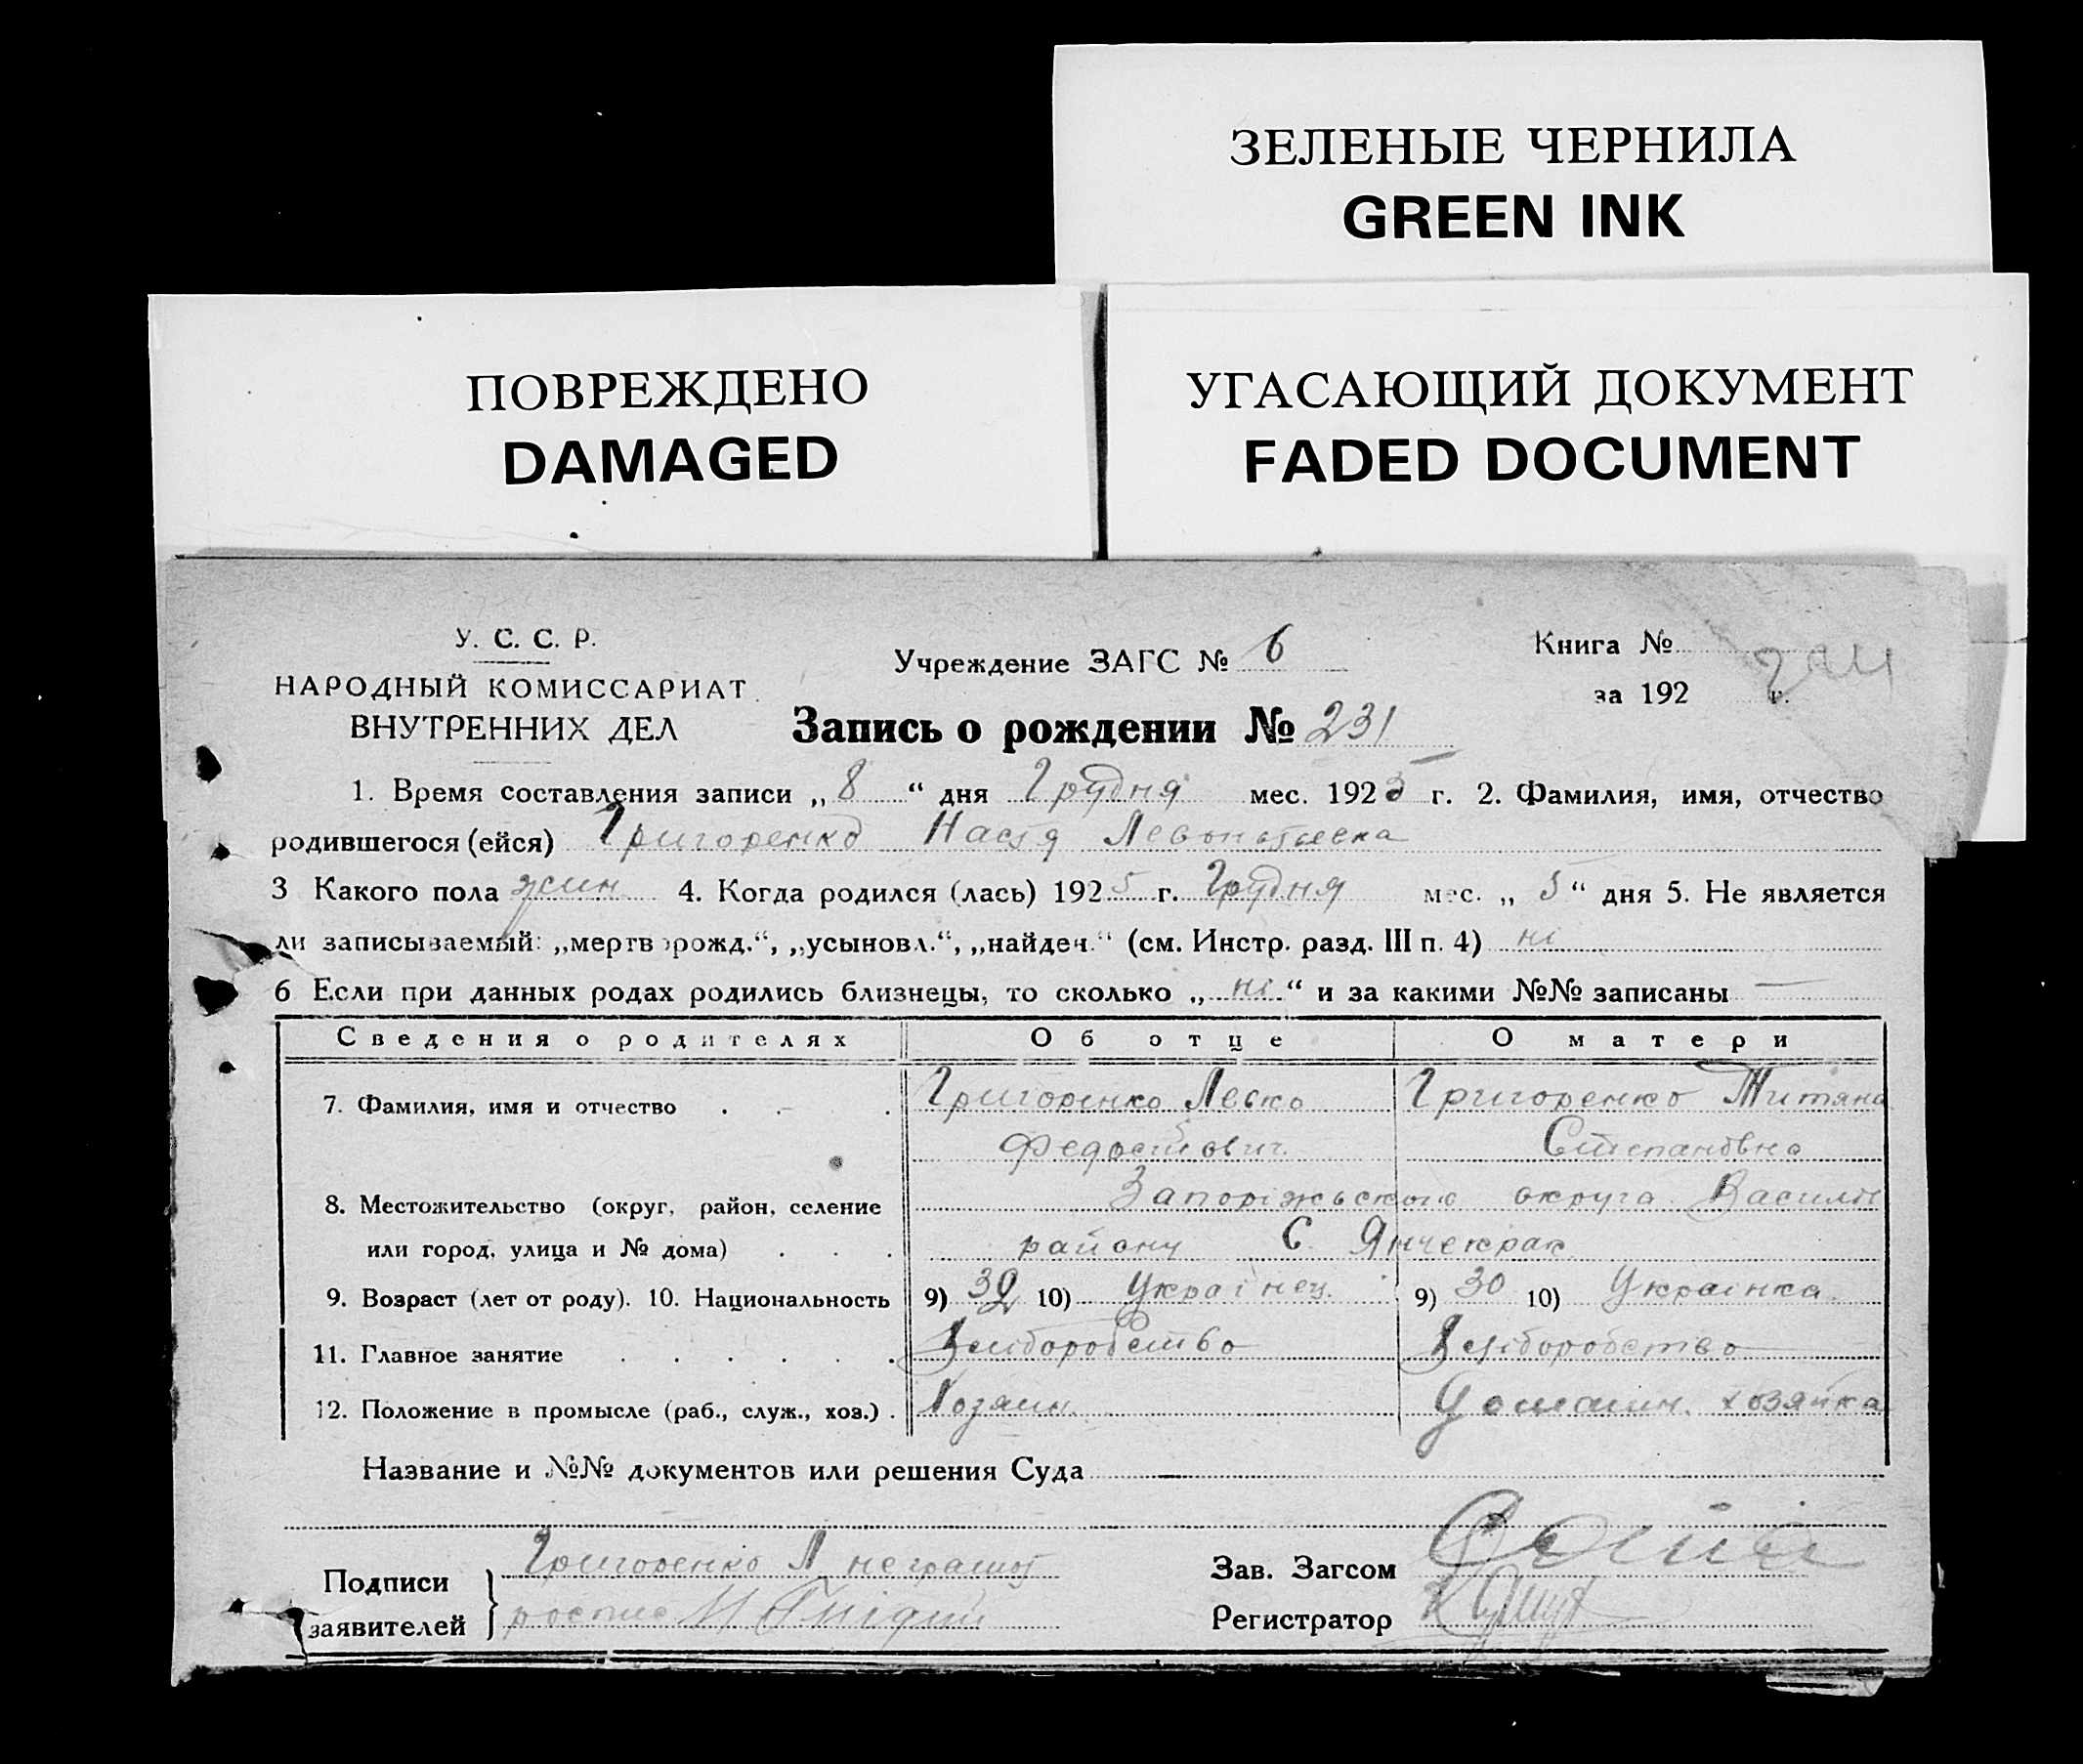 ЗЕЛЕНЫЕ ЧЕРНИЛА
GREEN INK
ПОВРЕЖДЕНО
DAMAGED
УГАСАЮЩИЙ ДОКУМЕНТ
FADED DOCUMENT
У. С. С. Р.
НАРОДНЫЙ КОМИССАРИАТ
ВНУТРЕННИХ ДЕЛ
Учреждение ЗАГС № 6
Книга №
за 192 г.
Запись о рождении № 231
1. Время составления записи „ 8 “ дня Грудня мес. 1925 г. 2. Фамилия, имя, отчество
родившегося (ейся) Григоренко Настя
3 Какого пола жин 4. Когда родился (лась) 1925 г. Грудня мес. „ 5 “ дня 5. Не является
ли записываемый: „мертворожд.“, „усыновл.“, „найден.“ (см. Инстр. разд. III п. 4) ні
6 Если при данных родах родились близнецы, то сколько „ ні “ и за какими №№ записаны —
Сведения о родителях Об отце О матери
7. Фамилия, имя и отчество . . . Григоренко Левко Григоренко Титяна
Федосійович Степановна
8. Местожительство (округ, район, селение Запоріжського округа Василів
или город, улица и № дома) . . . району С Янчекрак
9. Возраст (лет от роду). 10. Национальность 9) 32 10) Украінец. 9) 30 10) Украінка.
11. Главное занятие . . . . . . Хліборобство Хліборобство
12. Положение в промысле (раб., служ., хоз.) . Хозяин. Домашн. хозяйка
Название и №№ документов или решения Суда —
Подписи
заявителей
Григоренко Л неграмот
роспис
Зав. Загсом
Регистратор